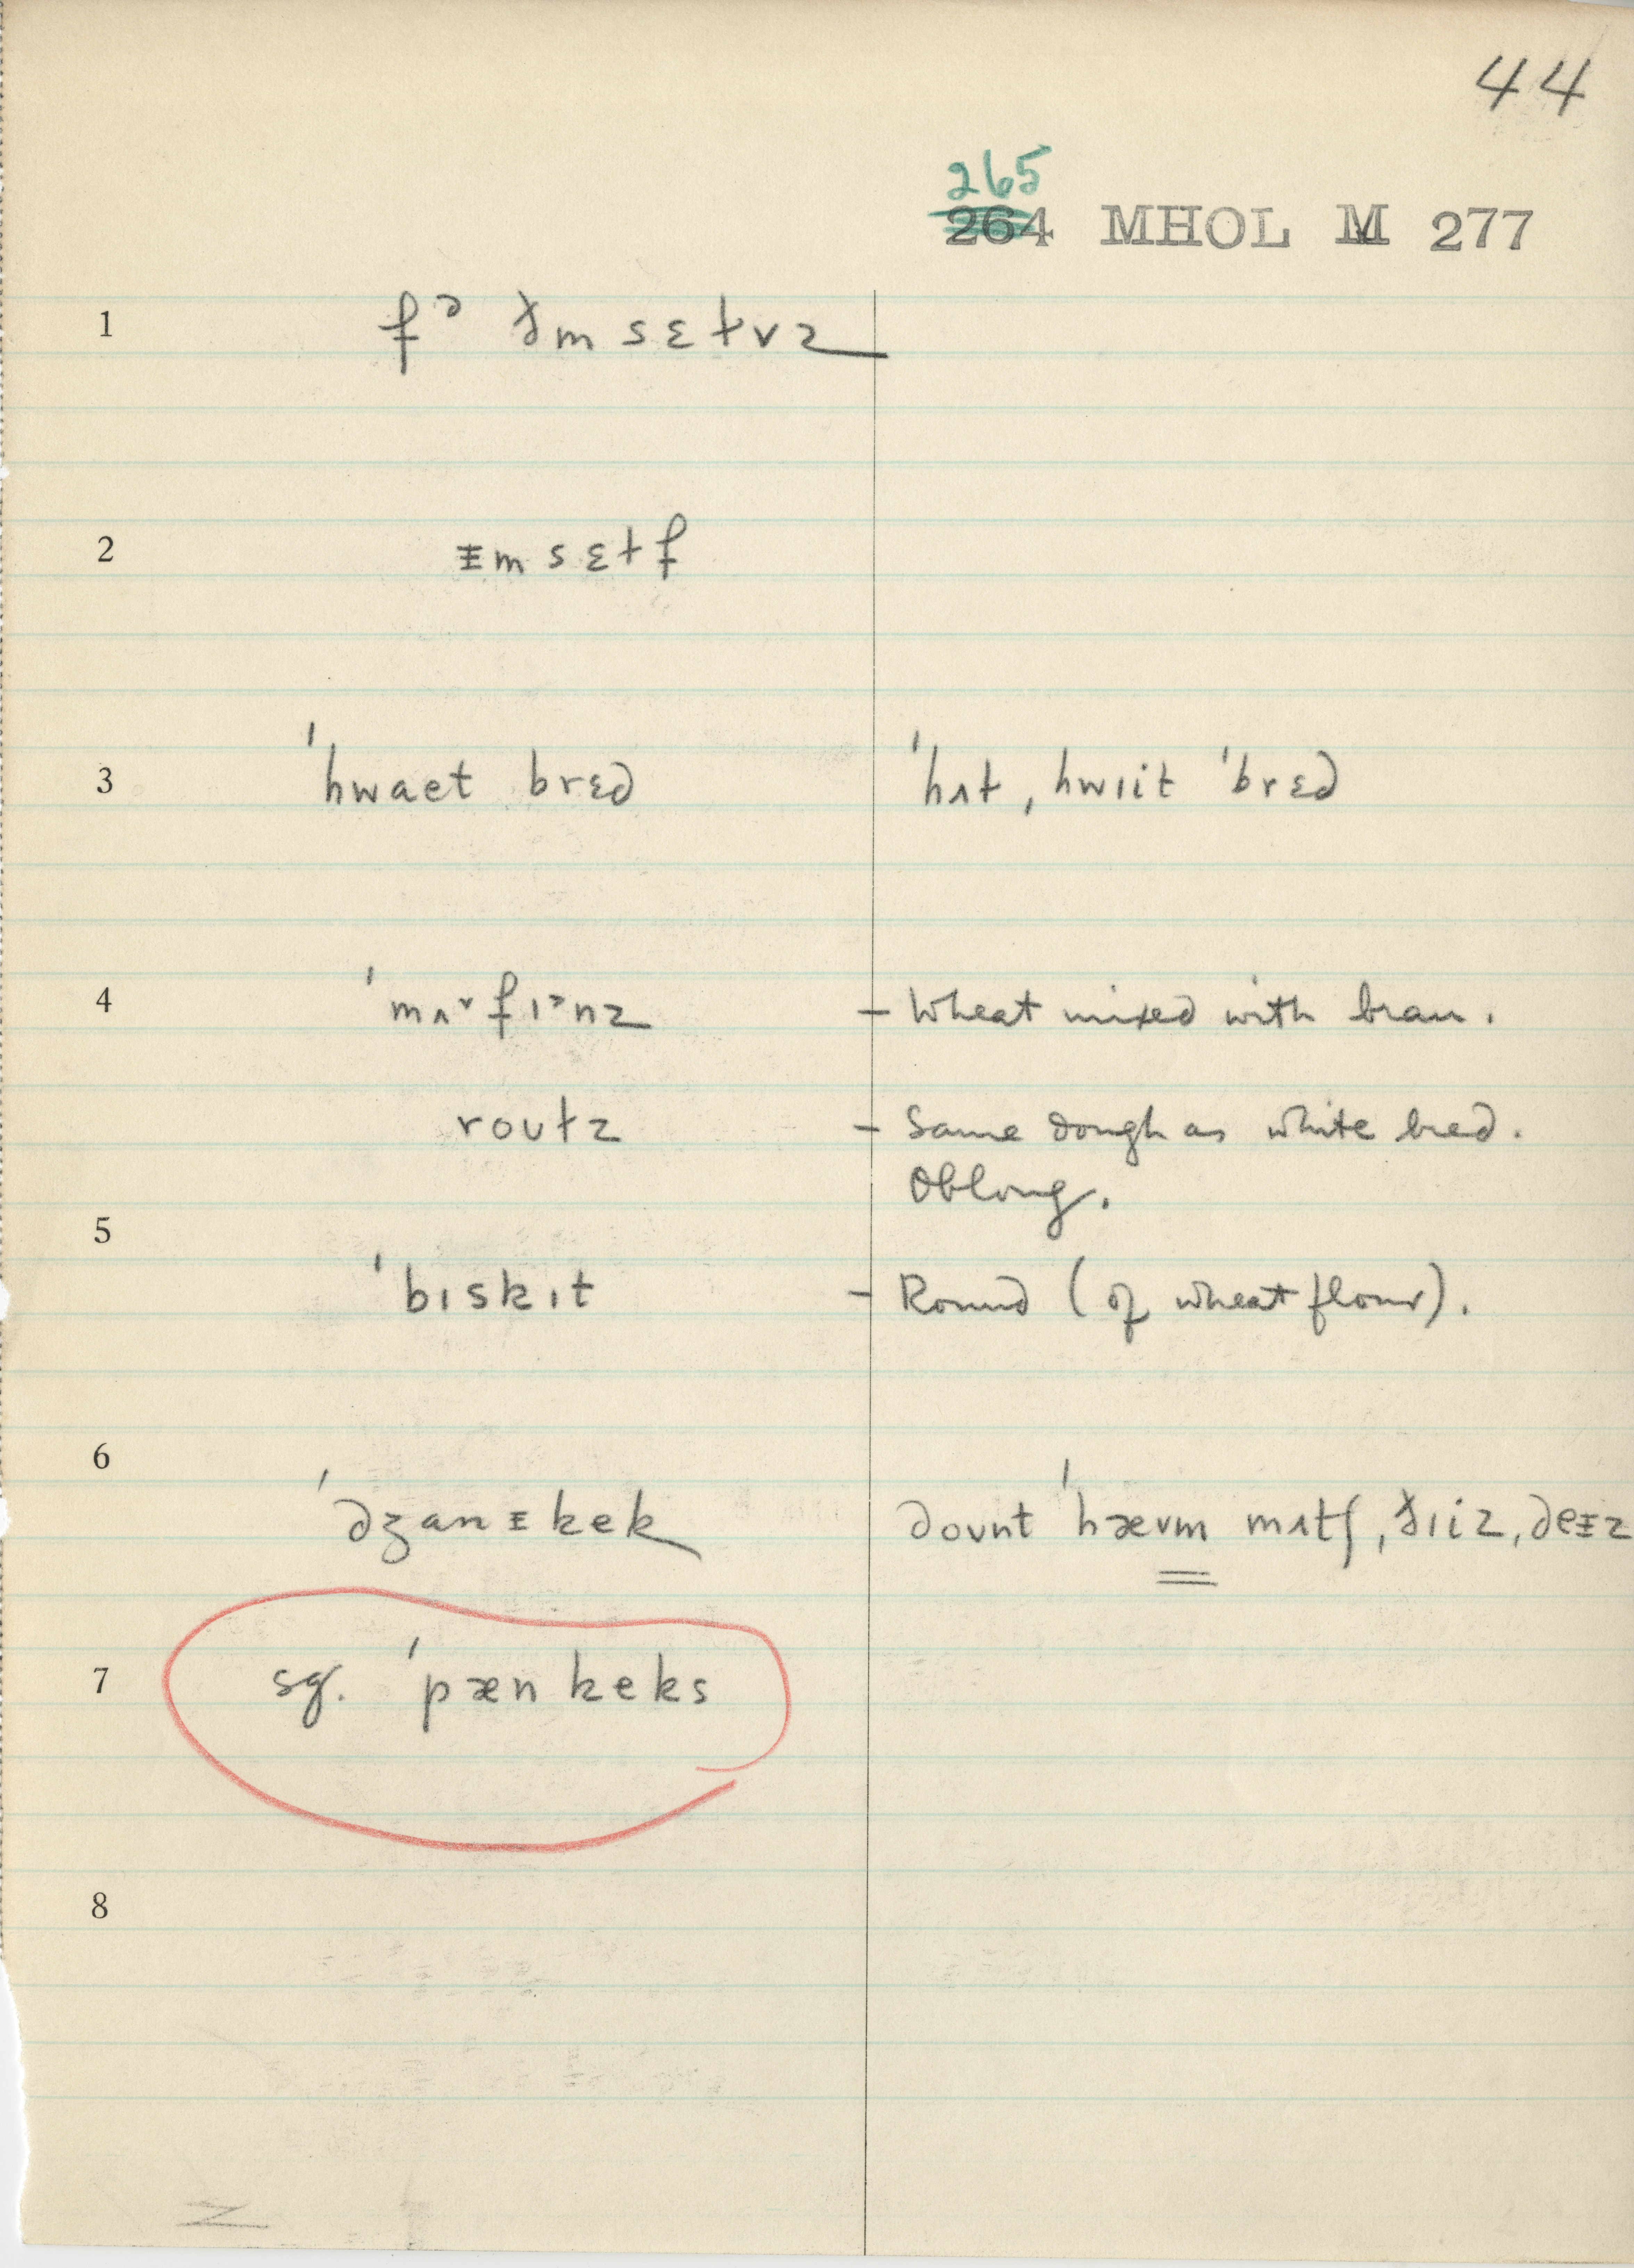 44
265
264 MHOL M 277
1 fᵊ ðm sɛɫvz
2 ᵻm sɛɫf
3 ˈhwaet brɛd ˈhʌt, hwɪit ˈbrɛd
4 ˈmʌ˅fɪ˃nz – Wheat mixed with bran.
roʊɫz – Same dough as white bred.
Oblong.
5
ˈbɪskɪt – Round (of wheat flour).
6
ˈdʒanᵻkek doʊnt ˈhævm mʌtʃ, ðɪiz, deᵻz
7 sg. ˈpænkeks
8